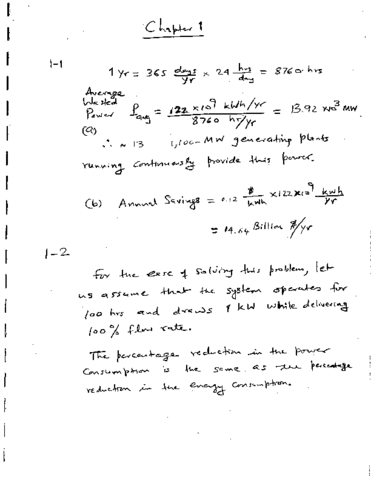 Chapter 1
1-1
1 yr = 365 days/yr × 24 hrs/day = 8760 hrs
Average
Wasted
Power P_avg = 122 × 10^9 kWh/yr / 8760 hr/yr = 13.92 × 10^3 MW
(a)
∴ ≈ 13 1,100-MW generating plants
running continuously provide this power.
(b) Annual Savings = 0.12 $/kWh × 122 × 10^9 kWh/yr
= 14.64 Billion $/yr
1-2
For the ease of solving this problem, let
us assume that the system operates for
100 hrs and draws 1 kW while delivering
100% flow rate.
The percentage reduction in the power
consumption is the same as the percentage
reduction in the energy consumption.